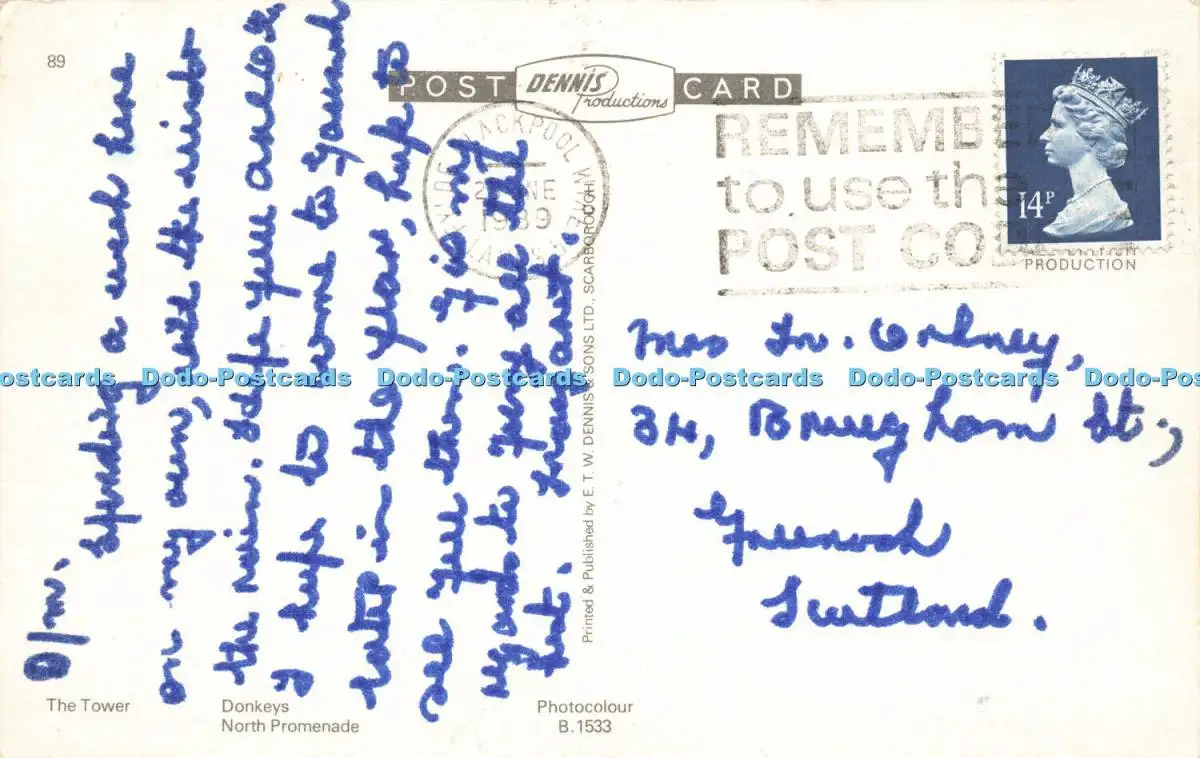 89
POST DENNIS Productions CARD
BLACKPOOL WYRE
NE
1989
REMEMBE
to use the
POST CO
14P
PRODUCTION
D/M.
Spending a week here
on my own, mild the wind
the rain. Hope you are
I hope to come to Gourock
later in the year, hope to
see you then. Give my
regards to your all the
best. Margaret.
Printed & Published by E. T. W. DENNIS & SONS LTD., SCARBOROUGH
Mrs Orkney,
34, Brougham St.,
Greenock
Scotland.
Postcards Dodo-Postcards Dodo-Postcards Dodo-Postcards Dodo-Postcards Dodo-Postcards
The Tower
Donkeys
North Promenade
Photocolour
B.1533